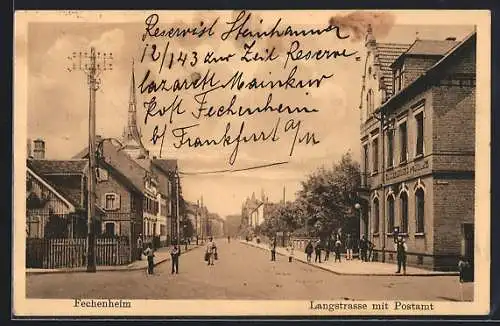 Reservist Steinhauer
12/143 zur Zeit Reserve
lazarett Mainkur
Post Fechenheim
b/ Frankfurt a/M
Fechenheim
Langstrasse mit Postamt